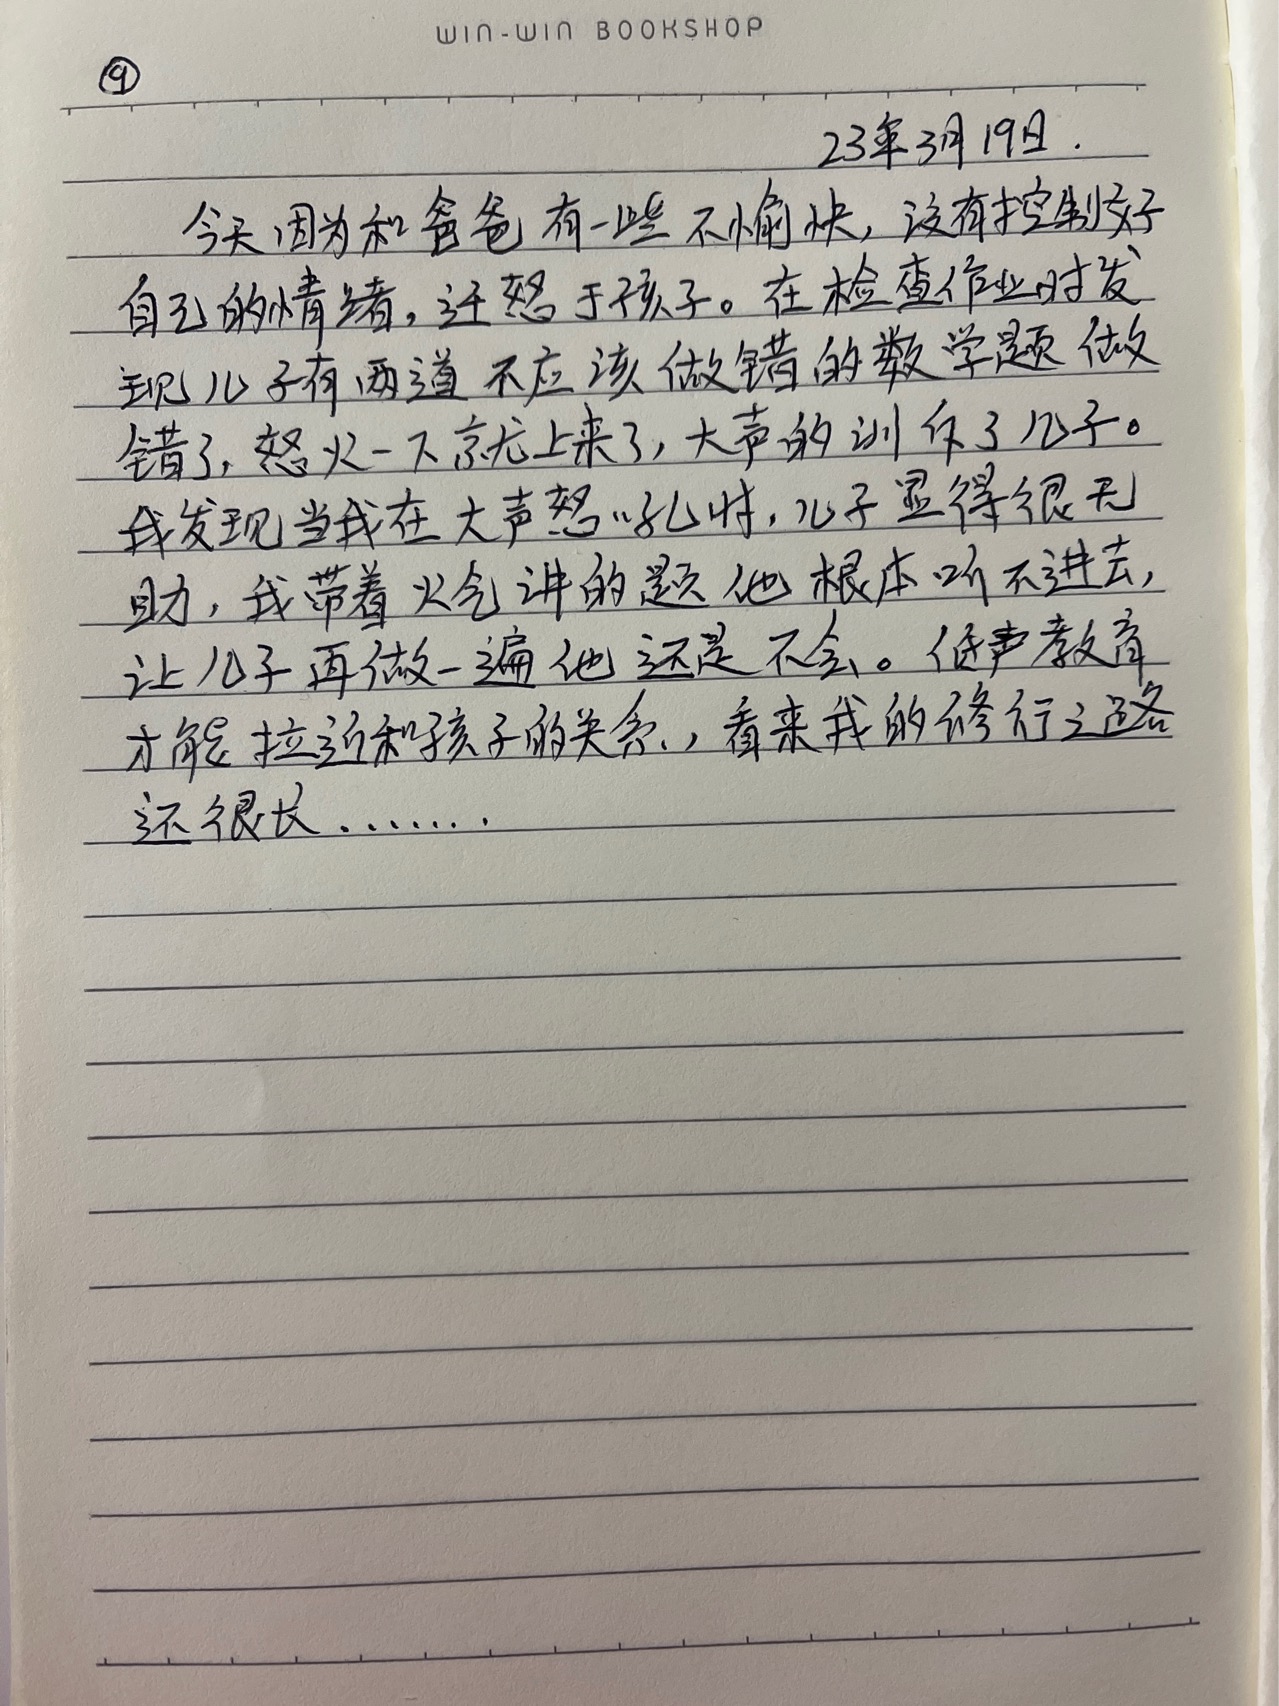 WIN-WIN BOOKSHOP
⑨
23年3月19日.
今天因为和爸爸有一些不愉快,没有控制好
自己的情绪,迁怒于孩子。在检查作业时发
现儿子有两道不应该做错的数学题做
错了,怒火一下就上来了,大声的训斥了儿子。
我发现当我在大声怒吼时,儿子显得很无
助,我带着火气讲的题他根本听不进去,
让儿子再做一遍他还是不会。低声教育
才能拉近和孩子的关系,看来我的修行之路
还很长.......